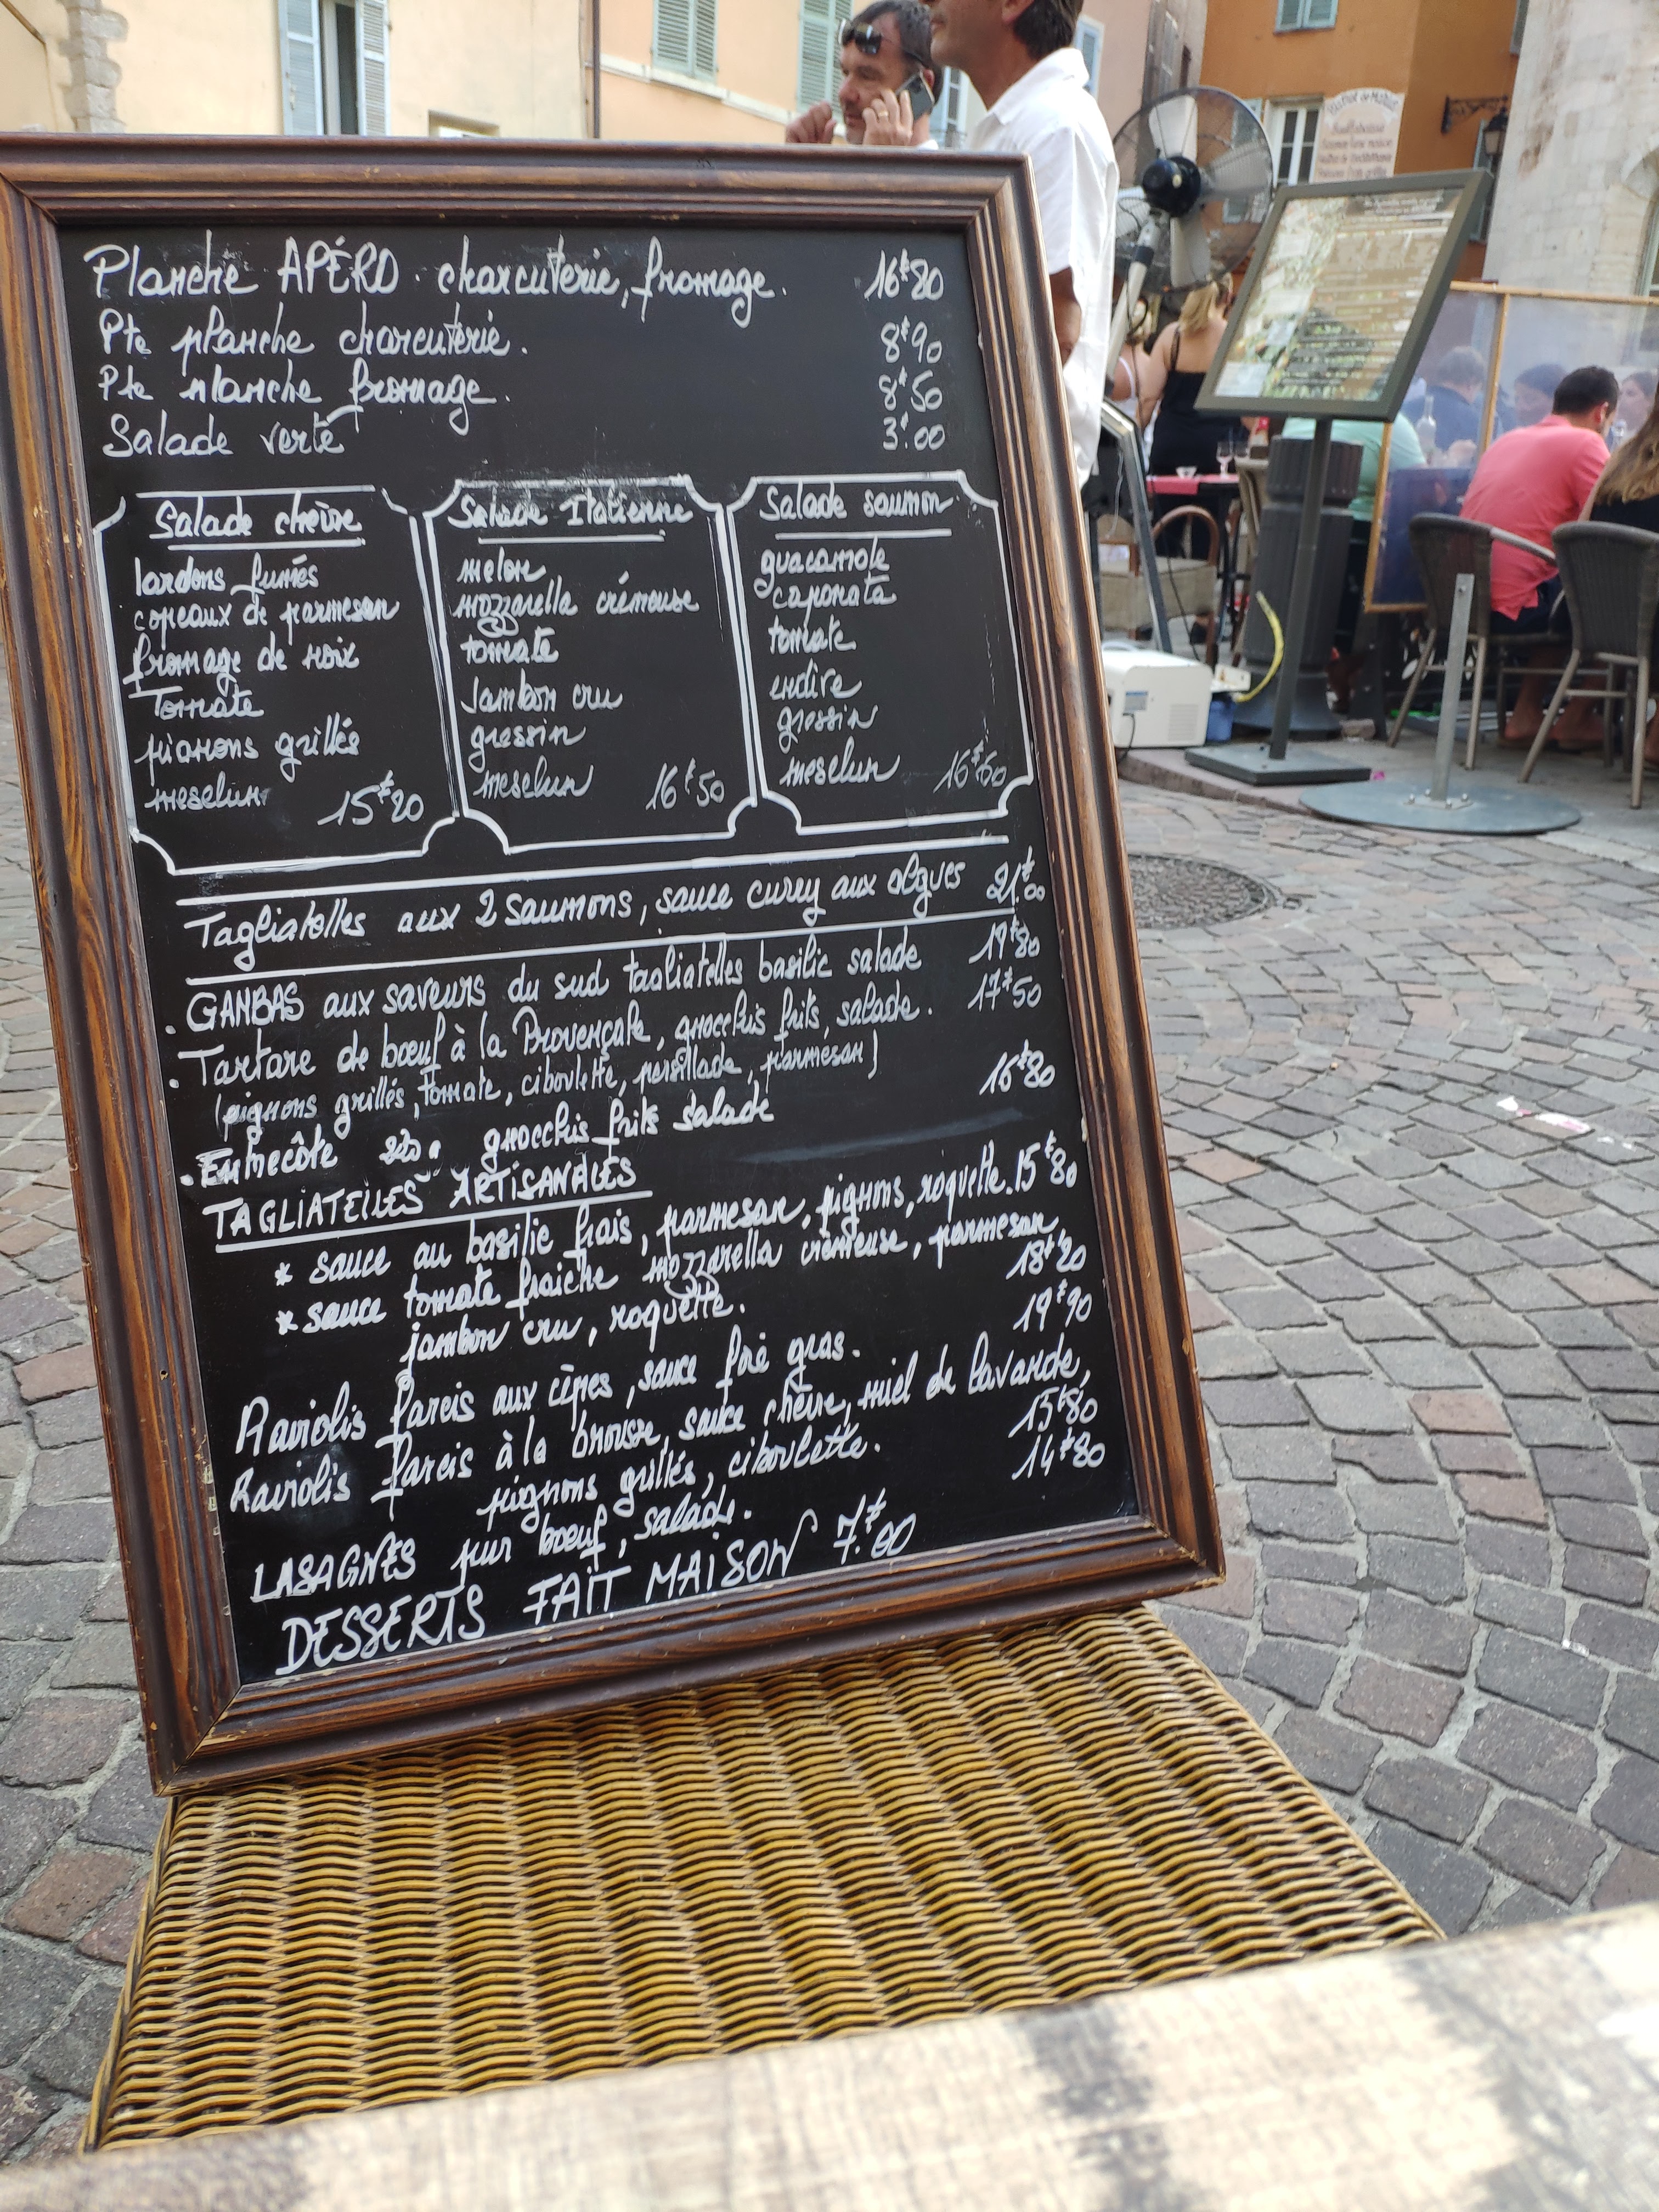 Planche APÉRO. charcuterie, fromage. 16€80
Pte planche charcuterie. 8€90
Pte planche fromage. 8€50
Salade verte 3€00
Salade chèvre
lardons fumés
copeaux de parmesan
fromage de noix
Tomate
pignons grillés
mesclun 15€20
Salade Italienne
melon
mozzarella crémeuse
tomate
Jambon cru
gressin
mesclun 16€50
Salade saumon
guacamole
caponata
tomate
endive
gressin
mesclun 16€60
Tagliatelles aux 2 saumons, sauce curry aux algues 21€00
. GANBAS aux saveurs du sud tagliatelles basilic salade 19€80
. Tartare de bœuf à la Provençale, gnocchis frits, salade. 17€50
(pignons grillés, tomate, ciboulette, persillade, parmesan)
. Entrecôte gnocchis frits salade 16€80
TAGLIATELLES ARTISANALES
* sauce au basilic frais, parmesan, pignons, roquette. 15€80
* sauce tomate fraiche mozzarella crémeuse, parmesan,
jambon cru, roquette. 18€20
Raviolis farcis aux cèpes, sauce foie gras. 19€90
Raviolis farcis à la brousse, sauce chèvre, miel de lavande,
pignons grillés, ciboulette. 15€80
LASAGNES pur bœuf, salade. 14€80
DESSERTS FAIT MAISON 7€00